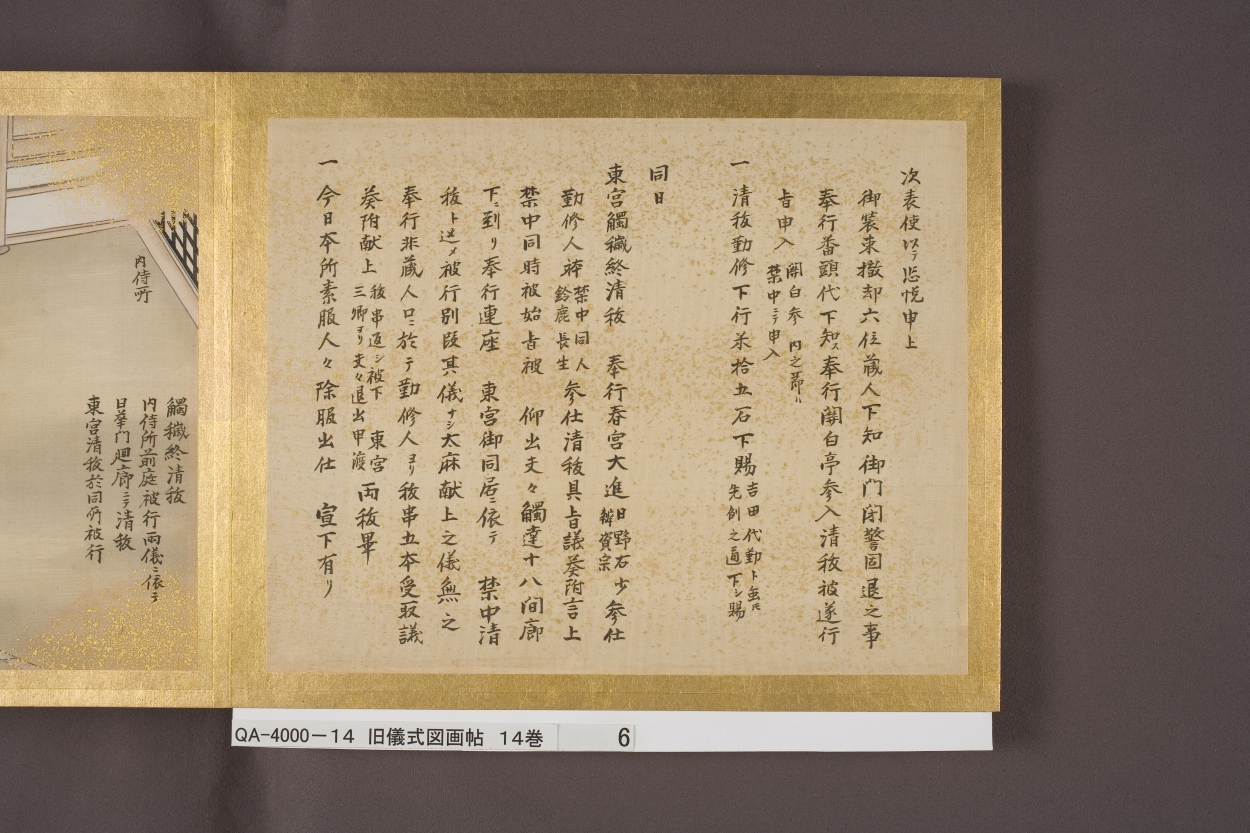 次表使以テ恐悦申上
御装束撤却六位蔵人下知 御門閉警固退之事
奉行番頭代下知ス奉行関白亭参入清秡被遂行
旨申入 関白参 内之節ハ
禁中ニテ申入
一 清秡勤修下行米拾五石下賜 吉田代勤ト雖托
先例之通下シ賜
同日
東宮觸穢終清秡 奉行春宮大進 日野右少
辨資宗 参仕
勤修人 禁中同人
鈴鹿長生 参仕清秡具旨議奏附言上
禁中同時被始旨被 仰出支々觸達十八間廊
下ニ到リ奉行連座 東宮御同居ニ依テ 禁中清
秡ト込メ被行別段其儀ナシ太麻献上之儀無之
奉行非蔵人口ニ於テ勤修人ヨリ秡串五本受取議
奏附献上 秡串返シ被下 東宮
三卿ヨリ支々退出申渡 両秡畢
一 今日本所素服人々除服出仕 宣下有リ
内侍所
觸穢終清秡
内侍所前庭被行両儀ニ依テ
日華門廻廊ニテ清秡
東宮清秡於同所被行
QA-4000-14 旧儀式図画帖 14巻 6